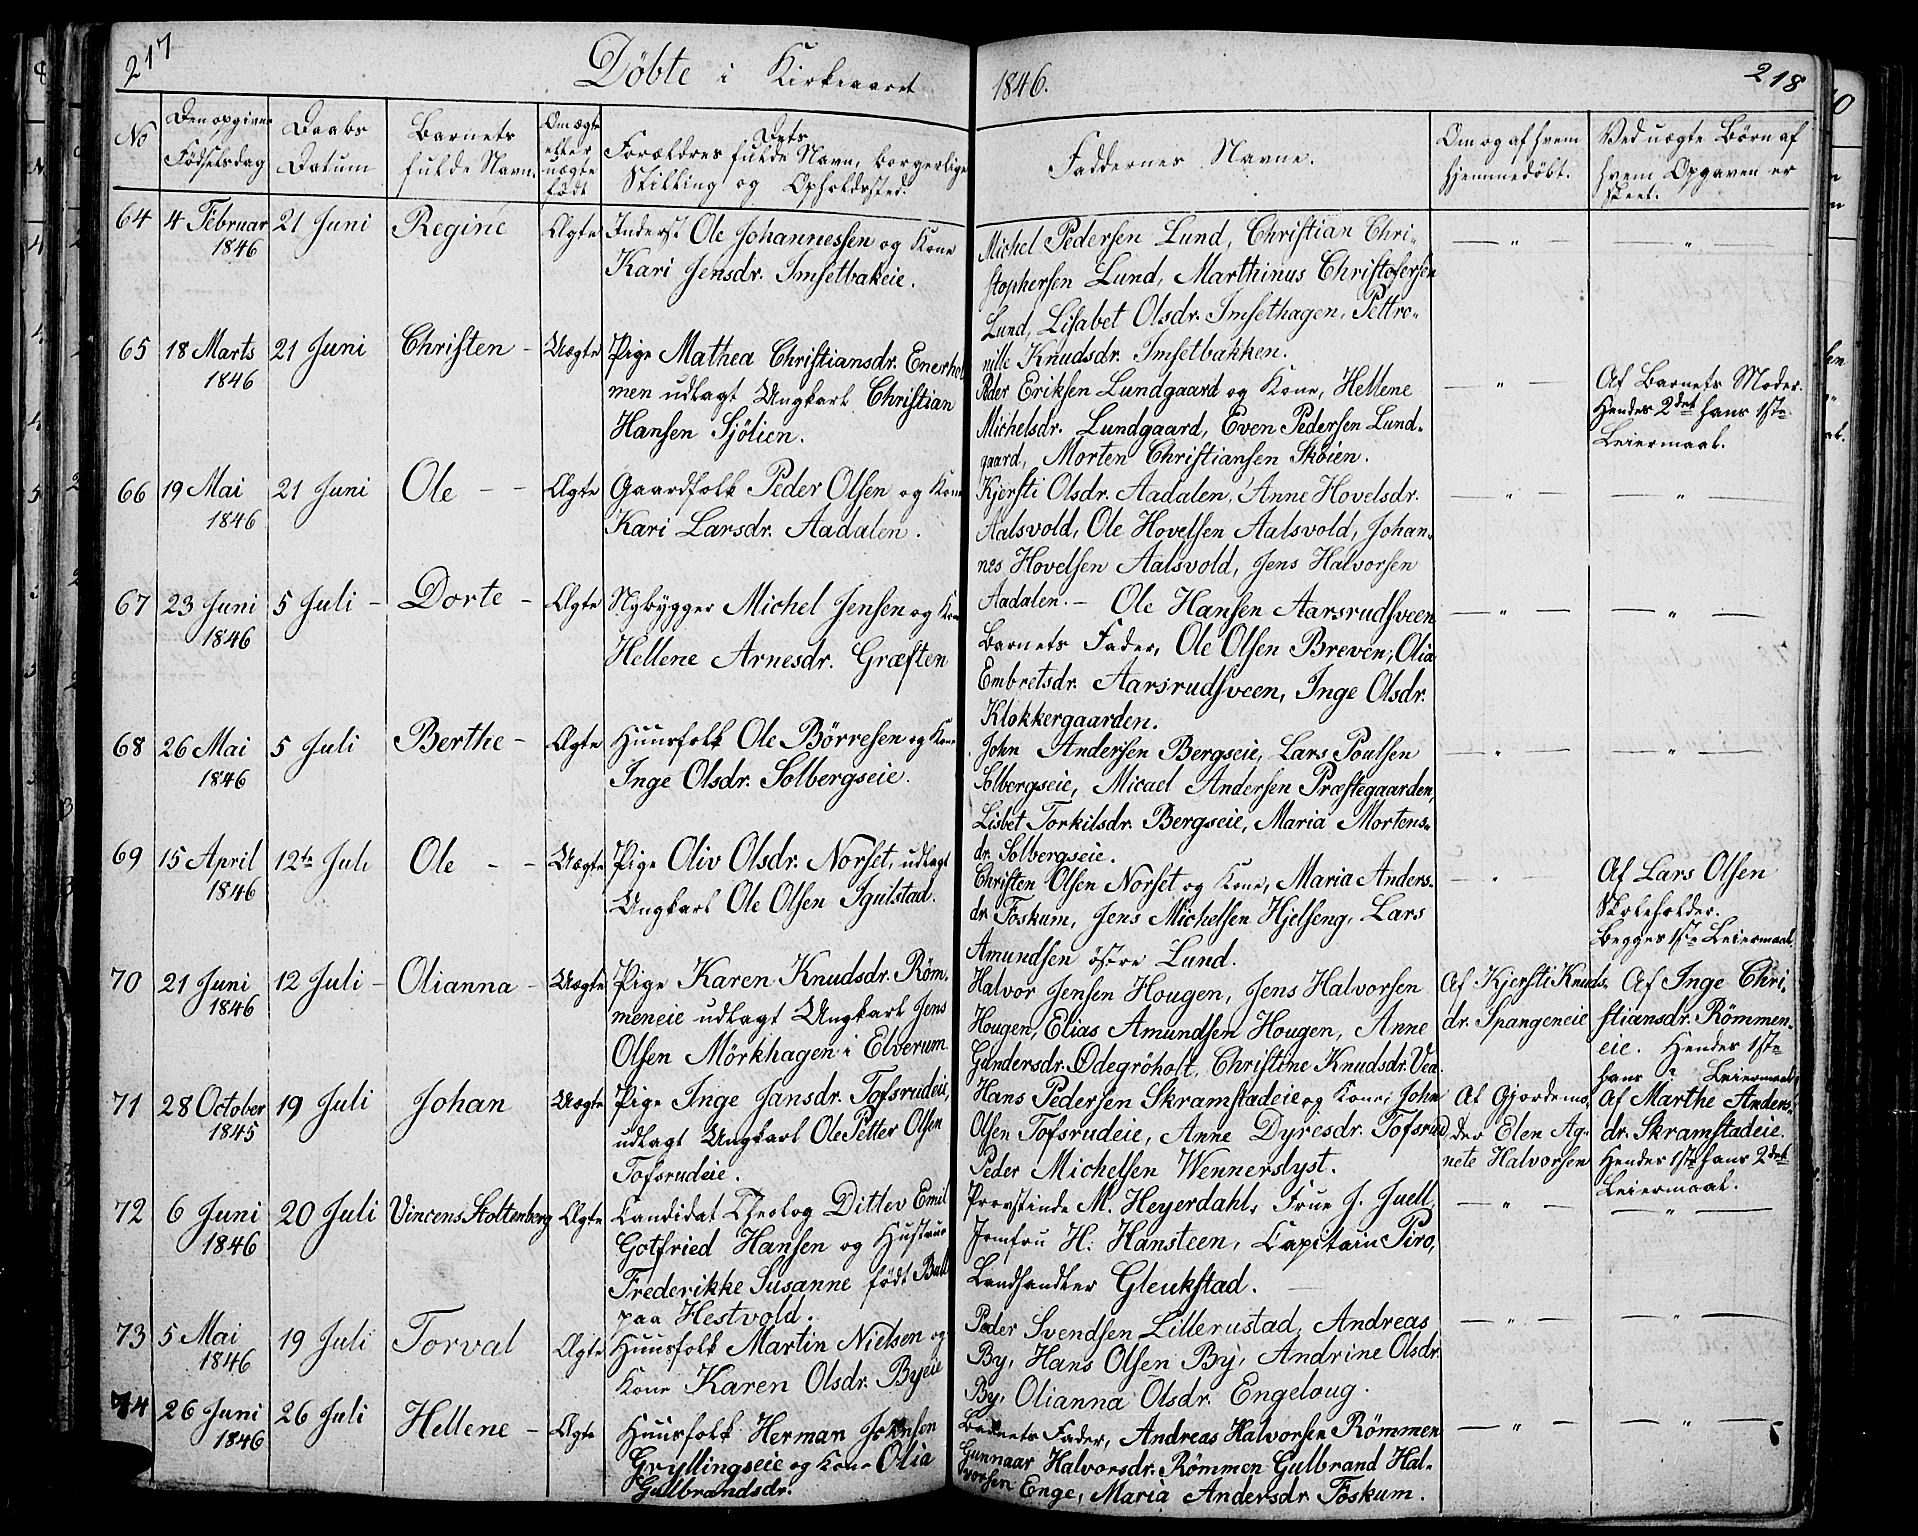 217
Döbte i Kirkeaaret
1846.
218
No
Den opgivne
Födselsdag
Daabs
Datum
Barnets
fulde Navn.
Om ægte
eller
uægte
født
Dets
Forældres fulde Navn, borgerlige
Stilling og Opholdssted.
Faddernes Navne.
Om og af hvem
hjemmedøbt.
Ved uægte Börn af
hvem Opgaven er
skeet.
64 4 Februar 21 Juni Regine Ægte Inderst Ole Johannessen og Kone
1846
Kari Jensdr. Imsetbakeie.
Michel Pedersen Lund, Christian Chri-
stophersen Lund, Marthinus Christofersen
Lund, Lisabet Olsdr. Imsethagen, Pettro-
nille Knudsdr. Imsetbakken.
— " —
— " —
65 18 Marts 21 Juni Christen - Uægte Pige Mathea Christiansdr. Enerhol
1846
men udlagt Ungkarl Christian
Hansen Sjölien.
Peder Eriksen Lundgaard og Kone, Hellene
Michelsdr. Lundgaard, Even Pedersen Lund-
gaard, Morten Christiansen Skøien.
— " —
Af Barnets Moder.
Hendes 2det hans 1ste
Leiermaal.
66 19 Mai 21 Juni Ole - - Ægte Gaardfolk Peder Olsen og Kone
1846
Kari Larsdr. Aadalen.
Kjersti Olsdr. Aadalen, Anne Hovelsdr.
Aalsvold, Ole Hovelsen Aalsvold, Johan-
nes Hovelsen Aalsvold, Jens Halvorsen
Aadalen. —
— " —
— " —
67 23 Juni 5 Juli - Dorte - Ægte Nybygger Michel Jensen og Kone
1846
Hellene Arnesdr. Græften
Ole Hansen Aarsrudsveen
Barnets Fader, Ole Olsen Breven, Olia
Embretsdr. Aarsrudsveen, Inge Olsdr.
Klokkergaarden.
— " —
— " —
68 26 Mai 5 Juli Berthe - Ægte Huusfolk Ole Börresen og Kone
1846
Inge Olsdr. Solbergseie.
John Andersen Bergseie, Lars Poulsen
Solbergseie, Micael Andersen Præstegaarden,
Lisbet Torkilsdr. Bergseie, Maria Mortens-
dr. Solbergseie.
— " —
— " —
69 15 April 12te Juli Ole - - Uægte Pige Oliv Olsdr. Norset, udlagt
1846
Ungkarl Ole Olsen Igulstad.
Christen Olsen Norset og Kone, Maria Anders-
dr. Foskum, Jens Michelsen Hjelseng, Lars
Amundsen östre Lund.
— " —
Af Lars Olsen
Skoleholder.
Begges 1ste Leiermaal.
70 21 Juni 12 Juli - Olianna - Uægte Pige Karen Knudsdr. Röm-
1846
meneie udlagt Ungkarl Jens
Olsen Mörkhagen i Elverum
Halvor Jensen Hougen, Jens Halvorsen
Hougen, Elias Amundsen Hougen, Anne
Gundersdr. Ødegröholt, Christine Knudsdr. Vea.
Af Kjersti Knuds-
dr. Spangeneie
Af Inge Chri-
stiansdr. Römmen-
eie. Hendes 1ste
hans ? Leiermaal.
71 28 October 19 Juli Johan Uægte Pige Inge Jansdr. Tofsrudeie,
1845
udlagt Ungkarl Ole Petter Olsen
Tofsrudeie.
Hans Pedersen Skramstadeie og Kone, John
Olsen Tofsrudeie, Anne Dyresdr. Tofsrud
Peder Michelsen Wennerslyst.
Af Gjordemo-
der Elen Ag-
nete Halvorsen
Af Marthe Anders-
dr. Skramstadeie.
Hendes 1ste hans 2det
Leiermaal.
72 6 Juni 20 Juli Vincens Stoltenberg Ægte Candidat Theolog Ditlev Emil
1846
Gotfried Hansen og Hustrue
Frederikke Susanne født Bull
paa Hestvold.
Provstinde M. Heyerdahl, Frue J. Juell,
Jomfru H: Hansteen, Capitain Piro,
Landhandler Gleukstad. —
— " —
— " —
73 5 Mai 19 Juli Torval Ægte Huusfolk Martin Nielsen og
1846
Kone Karen Olsdr. Byeie
Peder Svendsen Lillerustad, Andreas
By, Hans Olsen By, Andrine Olsdr.
By, Olianna Olsdr. Engeloug.
— " —
— " —
74 26 Juni 26 Juli Hellene - Ægte Huusfolk Herman Johnsen
1846
Gryllingseie og Kone Olia
Gulbrandsdr.
Barnets Fader, Andreas Halvorsen Römmen
Gunnaar Halvorsdr. Römmen Gulbrand Hal-
vorsen Enge, Maria Andersdr. Foskum.
— " —
— " —